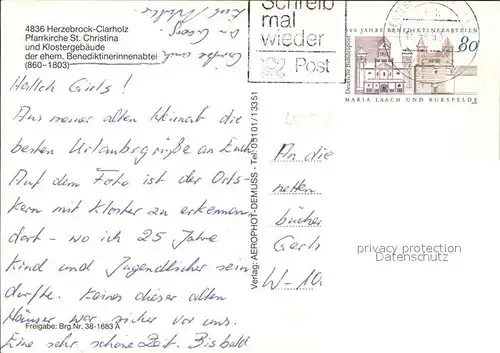 4836 Herzebrock-Clarholz
Pfarrkirche St. Christina
und Klostergebäude
der ehem. Benediktinerinnenabtei
(860-1803)
Hallo Girls!
Aus meiner alten Heimat die
besten Urlaubsgrüße an Euch
Auf dem Foto ist der Orts-
kern mit Kloster zu erkennen,
dort - wo ich 25 Jahre
Kind und Jugendlicher sein
durfte. Keines dieser alten
Häuser war sicher vor uns.
Eine sehr schöne Zeit. Bis bald
Freigabe: Brg.Nr. 38-1683 A
Verlag: AEROPHOT-DEMUSS - Tel. 05101/13351
Schreib
mal
wieder
Post
900 JAHRE BENEDIKTINERABTEIEN
80
Deutsche Bundespost
MARIA LAACH UND BURSFELDE
An die
netten
bücher
W-
privacy protection
DatenSchutz